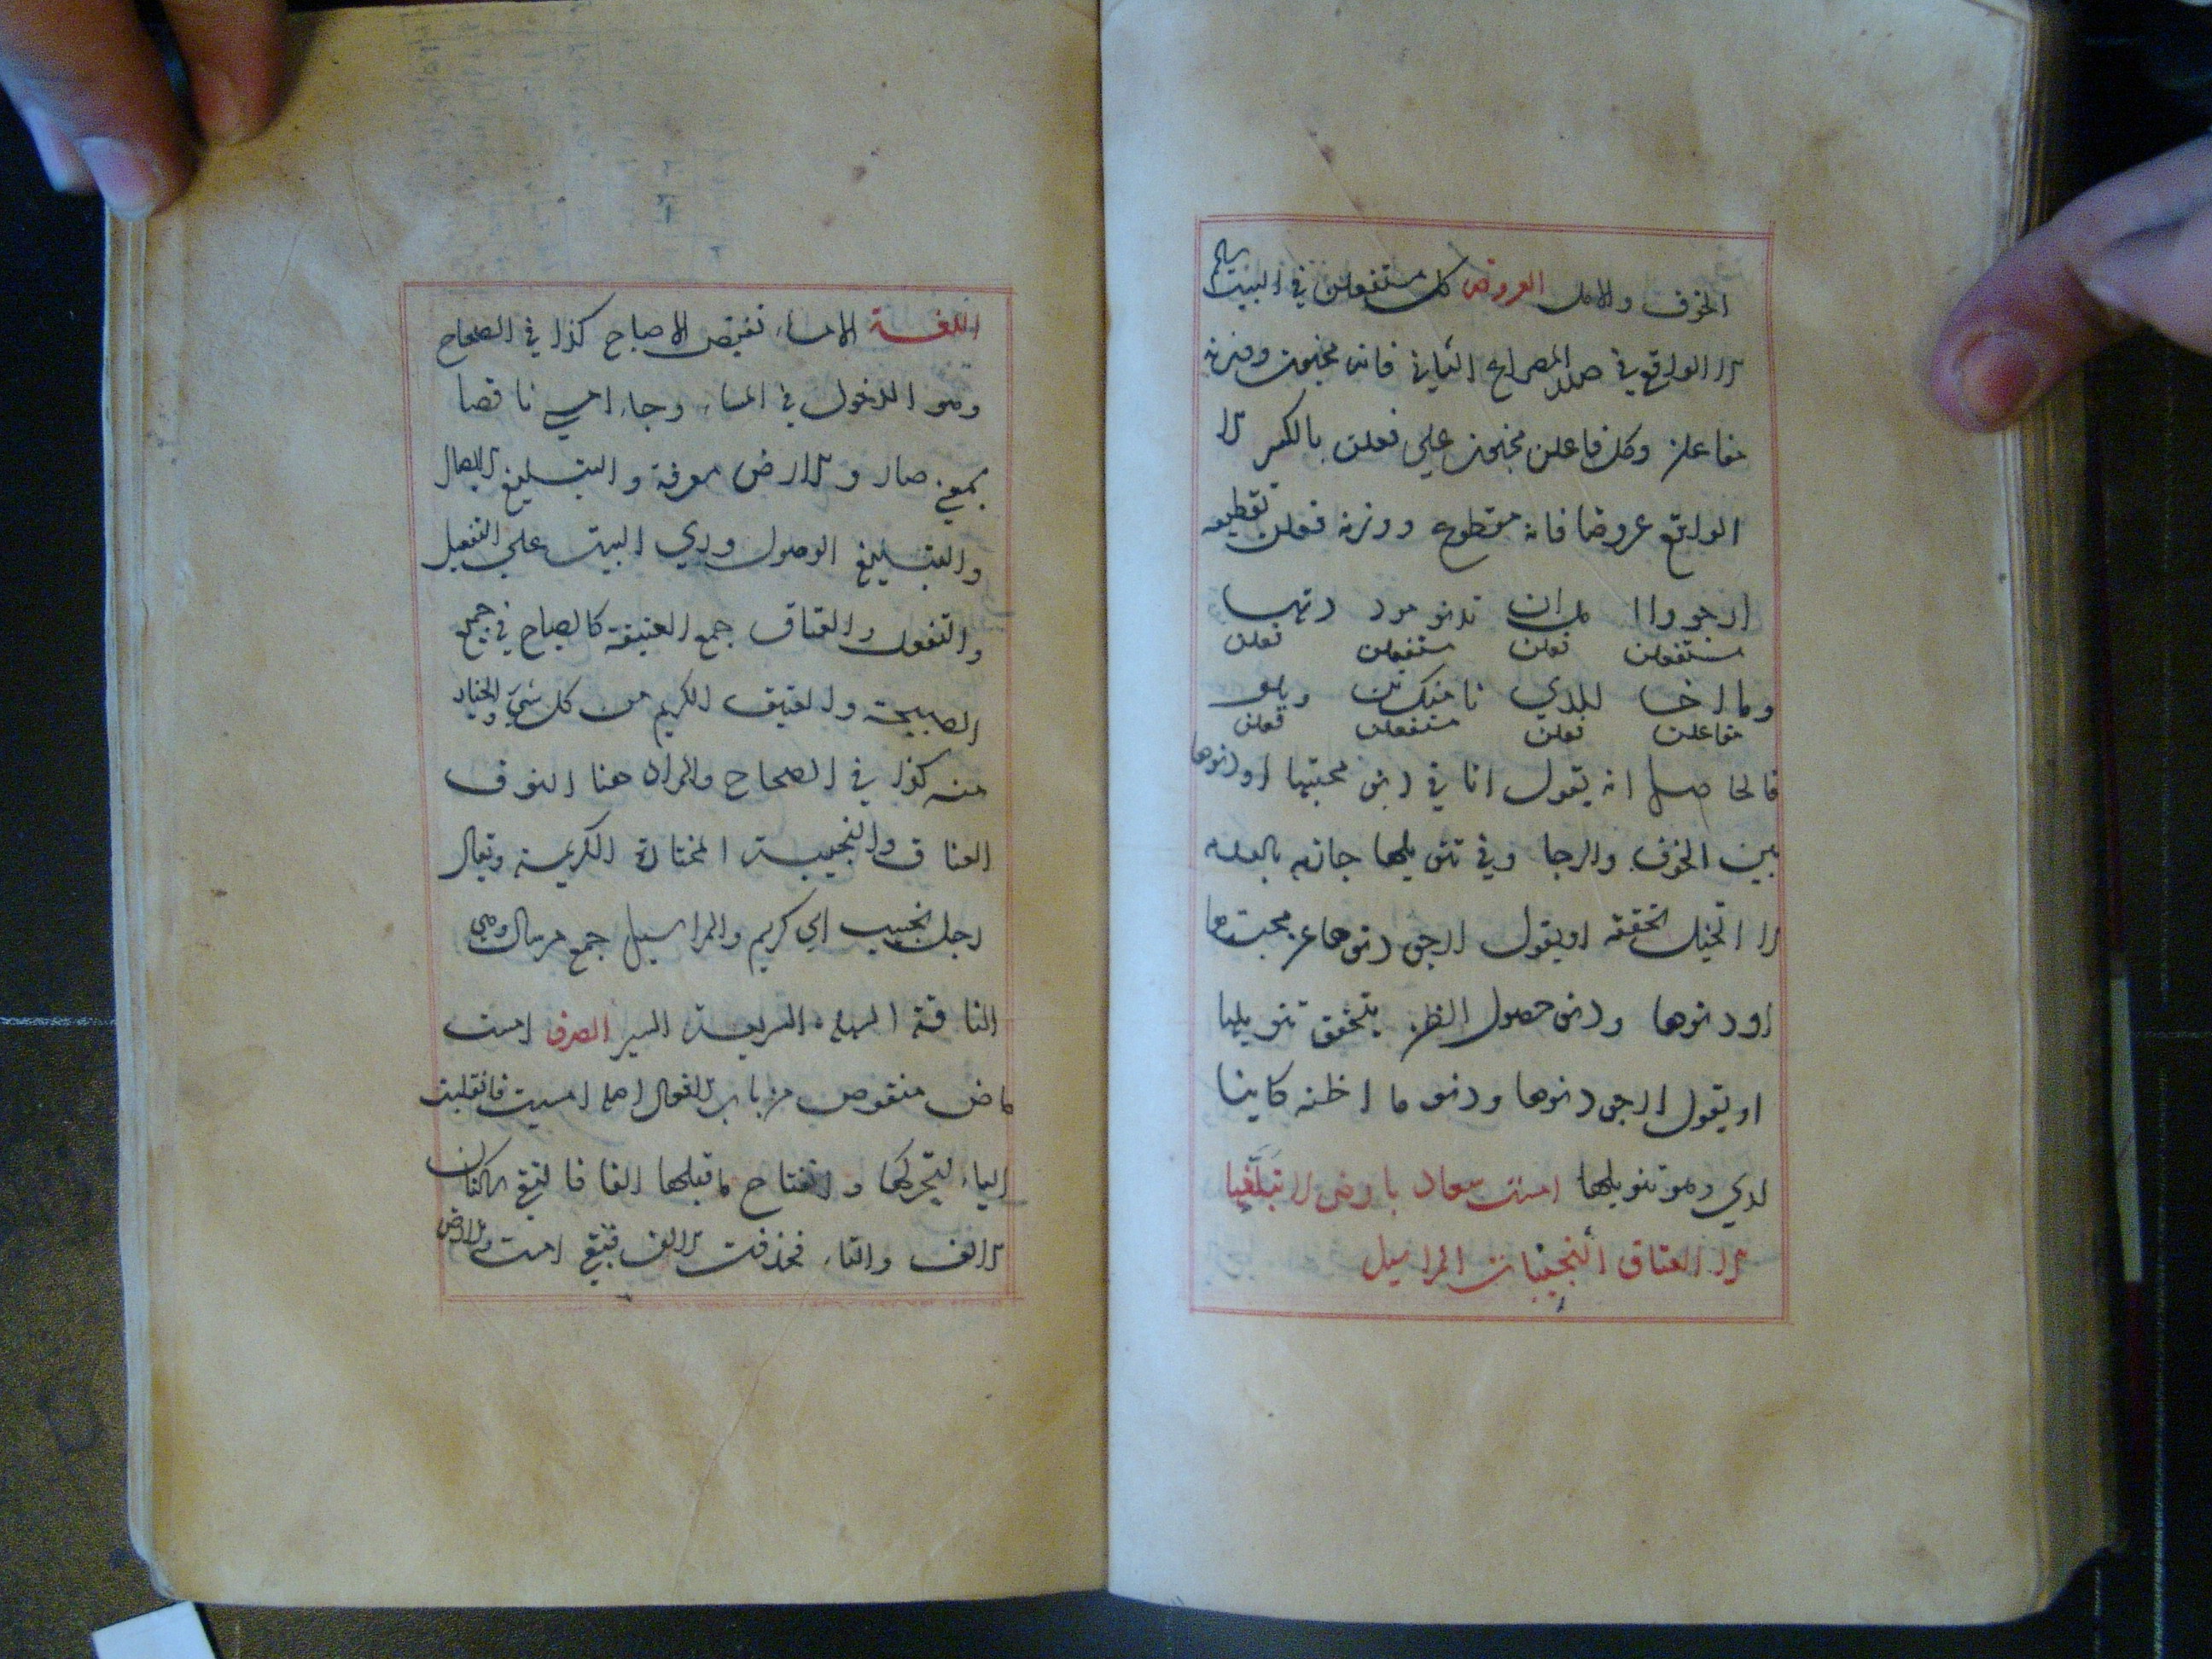 الخوف والامل العروض كل مستفعلن في البيت سالم
الا الواقع في صدر المصراع الثاني فانه مخبون وزنه
مفاعلن وكل فاعلن مخبون علي فعلن بالكسر الا
الواقع عروضا فانه مقطوع ووزنه فعلن تقطيعه
ارجووا ملان تدنو مود دتها
مستفعلن فعلن مستفعلن فعلن
وما اخا للدي نا منك تن ويلو
مفاعلن فعلن مستفعلن فعلن
فالحاصل انه يقول انا في دنو محبتها او دنوها
بين الخوف والرجا وفي تنويلها جازم بالعدم
لا اتخيل تحققه او يقول ارجو دنوها عن محبتها
او دنوها ودنو حصول الظن بتحقق تنويلها
او يقول ارجو دنوها ودنو ما اظنه كاينا
لدي وهو تنويلها امست سعاد بارض لا تبلغها
الا العتاق النجيبات المراسيل
اللغة الامساء نقيض الاصباح كذا في الصحاح
وهو الدخول في المساء وجاء امسي ناقصا
بمعني صار والارض معرفة والتبليغ الايصال
والتبليغ الوصول وروي البيت علي التفعيل
والتفعل والعتاق جمع العتيقة كالصباح في جمع
الصبيحة والعتيق الكريم من كل شيء والخيار
منه كذا في الصحاح والمراد هنا النوق
العتاق والنجيبة المختارة الكريمة ويقال
رجل نجيب اي كريم والمراسيل جمع مرسال وهي
الناقة السهلة السريعة السير الصرف امست
ماض منقوص من باب الافعال اصله امسيت فانقلبت
الياء لتحركها وانفتاح ما قبلها الفا فالتقي الساكنان
الالف والتاء فحذفت الالف فبقي امست والارض